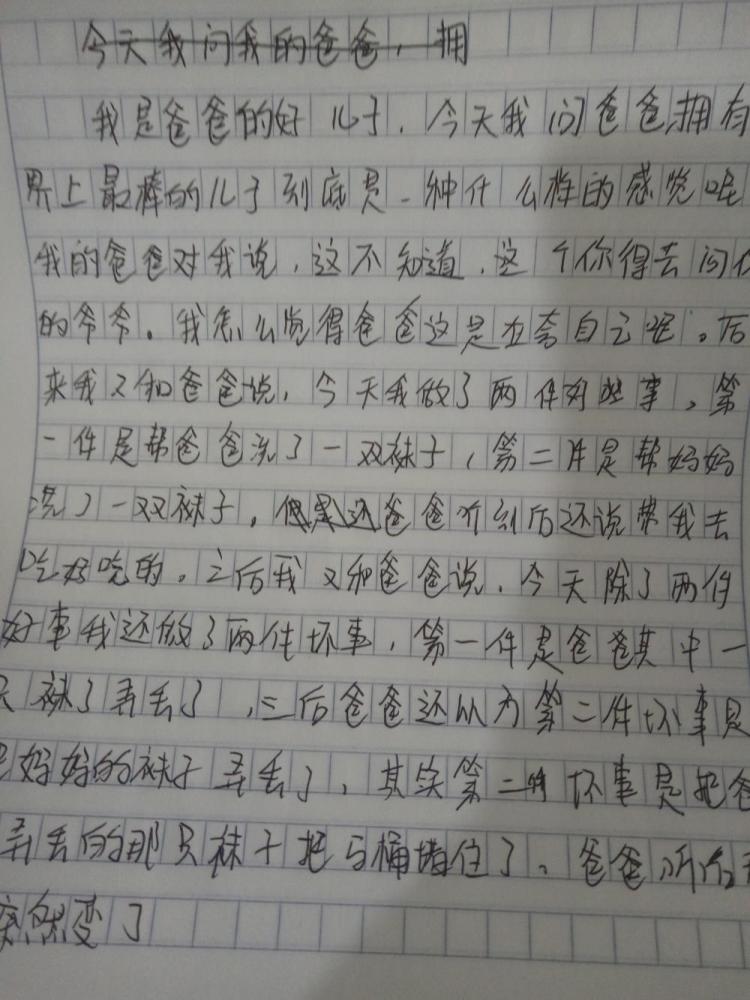 今天我问我的爸爸，拥
我是爸爸的好儿子，今天我问爸爸，拥有
界上最棒的儿子到底是一种什么样的感觉呢
我的爸爸对我说，这不知道，这个你得去问你
的爷爷。我怎么觉得爸爸这是在夸自己呢。后
来我又和爸爸说，今天我做了两件好些事，第
一件是帮爸爸洗了一双袜子，第二件是帮妈妈
洗了一双袜子，但是还爸爸听到后还说带我去
吃好吃的。之后我又和爸爸说，今天除了两件
好事我还做了两件坏事，第一件是爸爸其中一
只袜子弄丢了，三后爸爸还以为第二件坏事是
把妈妈的袜子弄丢了，其实第二件坏事是把爸
弄丢的那只袜子把马桶堵住了、爸爸听后
突然变了